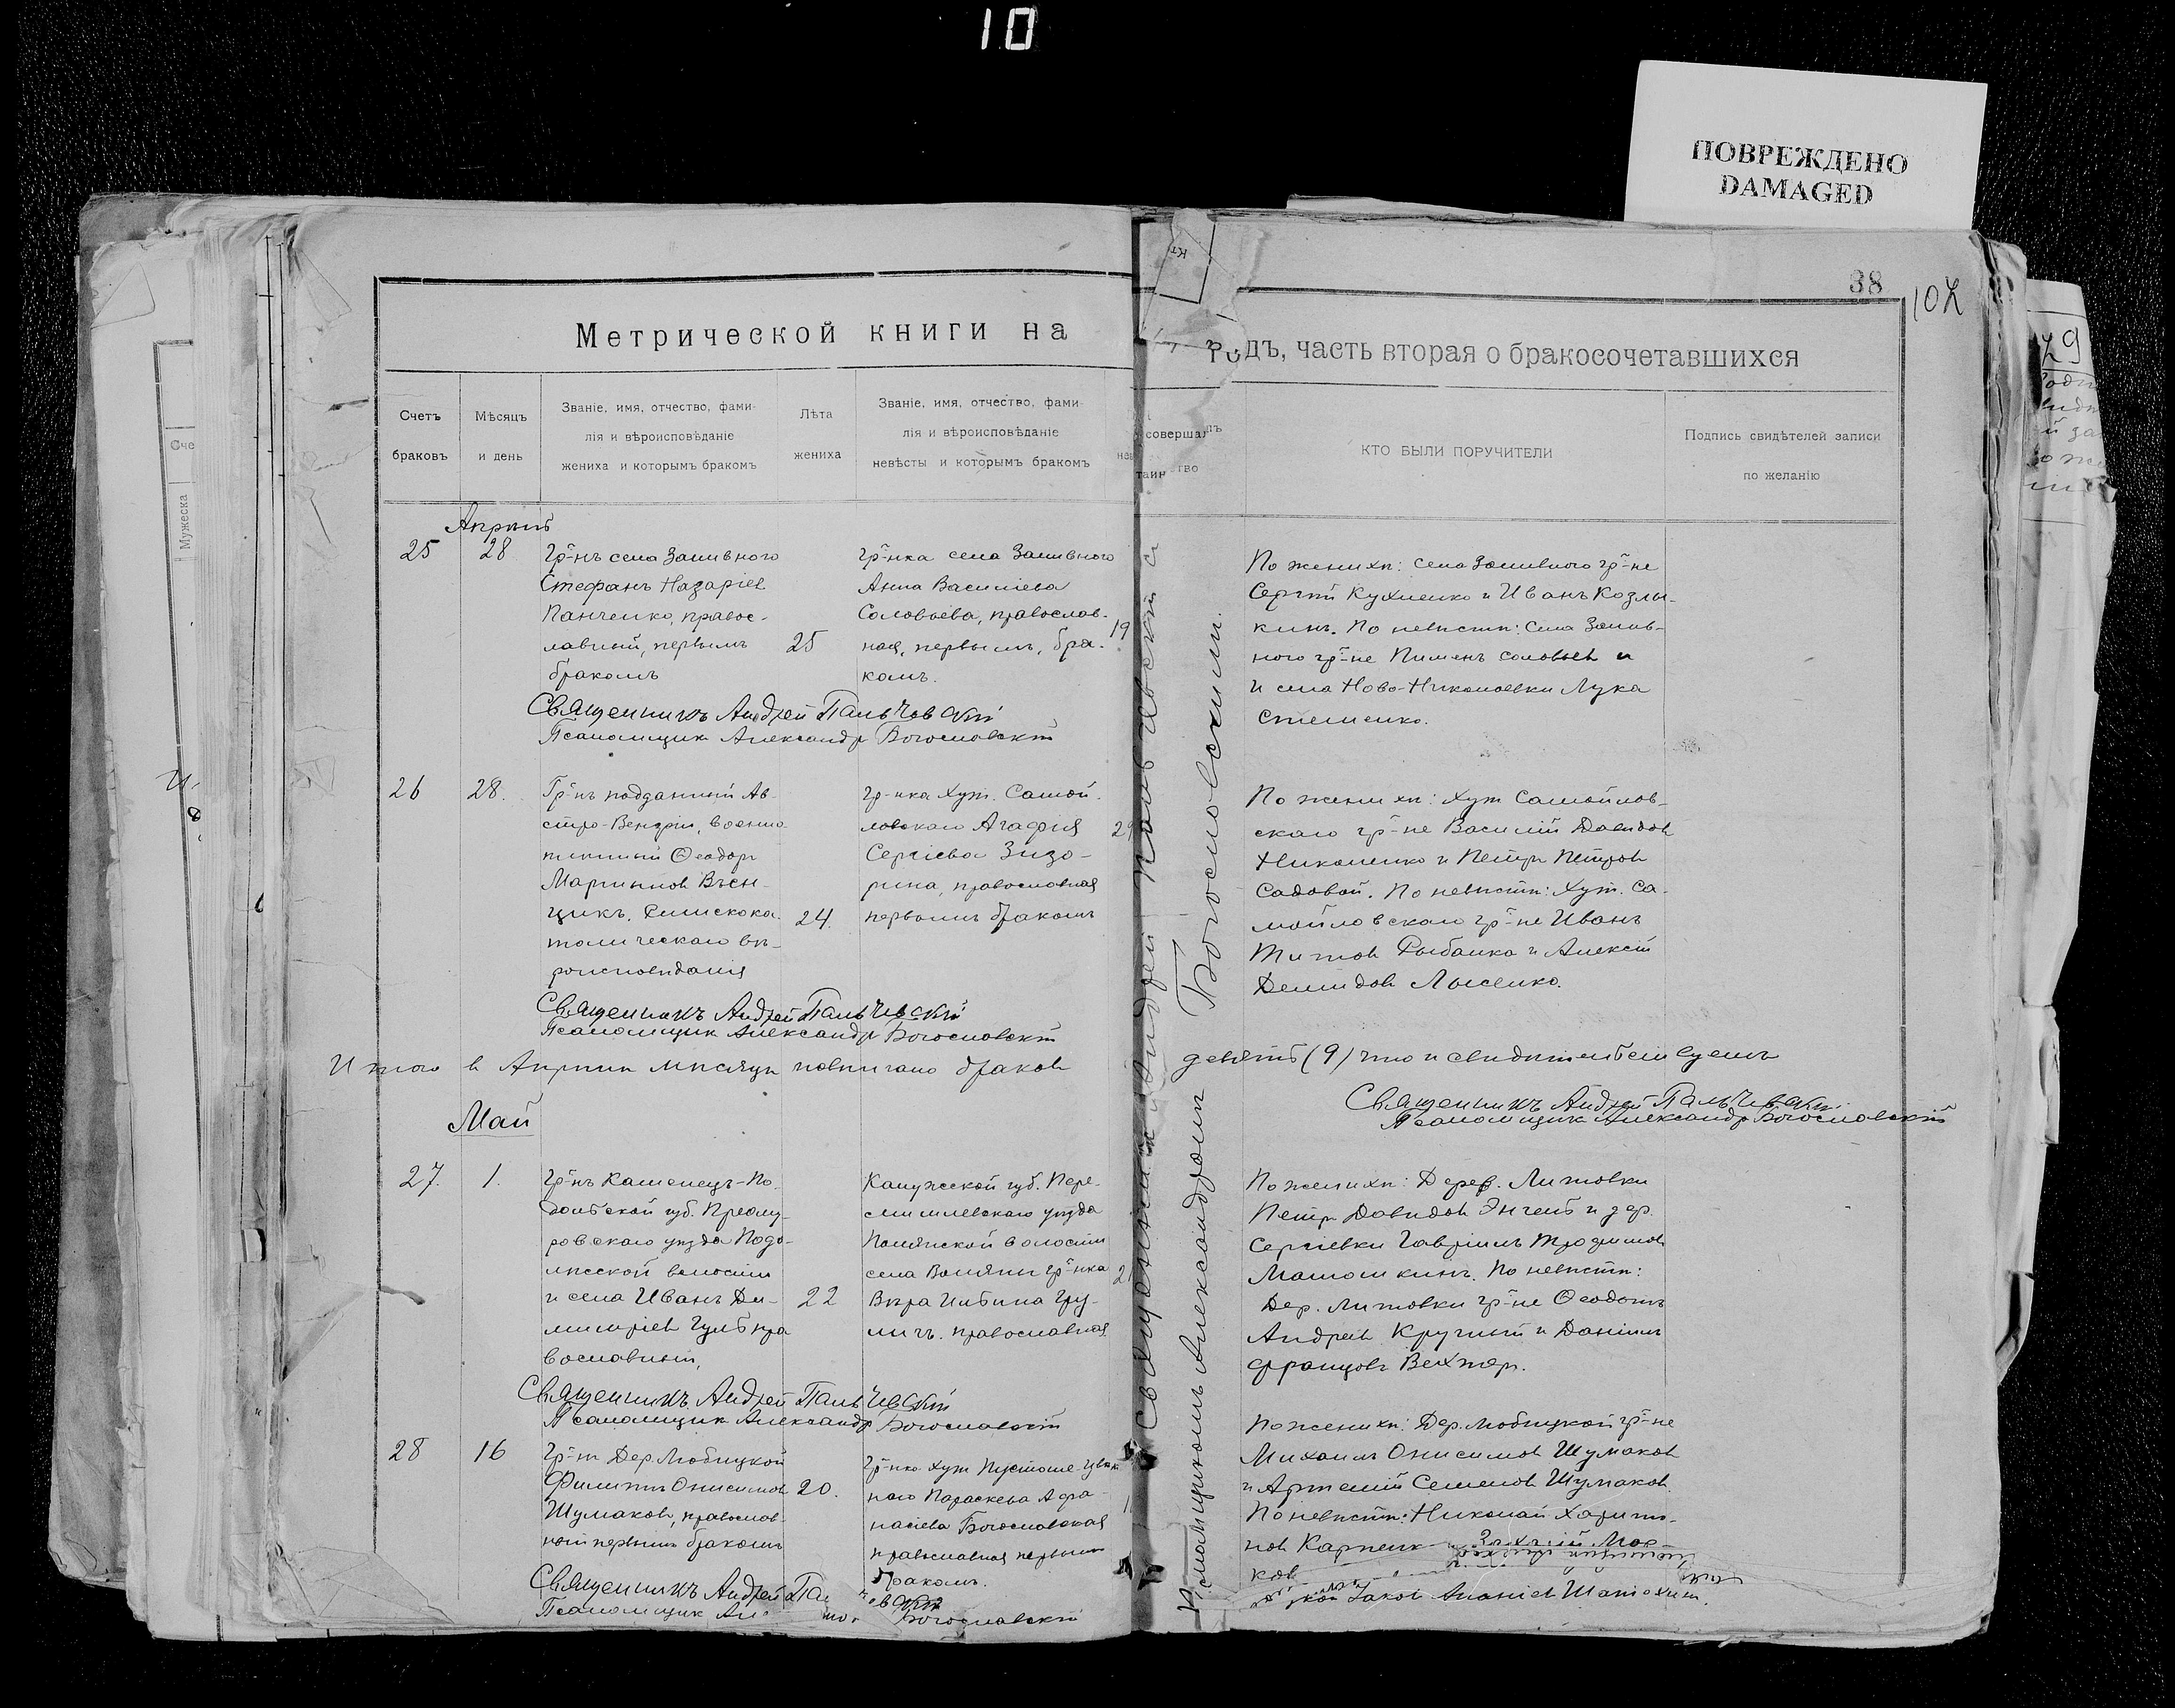 10
ПОВРЕЖДЕНО
DAMAGED
38
Метрической книги на
годъ, часть вторая о бракосочетавшихся
Счетъ
браковъ
Мѣсяцъ
и день
Званіе, имя, отчество, фами-
лія и вѣроисповѣданіе
жениха и которымъ бракомъ
Лѣта
жениха
Званіе, имя, отчество, фами-
лія и вѣроисповѣданіе
невѣсты и которымъ бракомъ
совершалъ
КТО БЫЛИ ПОРУЧИТЕЛИ
Подпись свидѣтелей записи
по желанію
Мужеска
Апрѣль
25
28
Гр-нъ села Заливного
Стефанъ Назаріев
Панченко, правос-
лавный, первымъ
бракомъ
25
Гр-нка села Заливного
Анна Василіева
Соловьева, православ-
ная, первымъ, бра-
комъ.
19
По женихѣ: села Заливного гр-не
Сергѣй Кухленко и Иванъ Козлы-
кинъ. По невѣстѣ: села Залив-
ного гр-не Пименъ Соловьев и
и села Ново-Николаевки Лука
Стеценко.
Священникъ Андрей Пальчевскій
Псаломщик Александр Богословскій
26
28.
Гр-нъ подданный Ав-
стро-Венгріи, военно-
плѣнный Ѳеодор
Мартинов
24.
толическаго вѣ-
роисповѣданія
гр-нка Хут. Самой-
ловскаго Агафія
Сергіева
православная
первымъ бракомъ
По женихѣ: Хут Самойлов-
скаго гр-не Василій Давидов
Николенко и Петръ Петров
Садовой. По невѣстѣ: Хут. Са-
мойловскаго гр-не Иванъ
Титов Рыбалка и Алексѣй
Демидов Лысенко.
Священникъ Андрей Пальчевскій
Псаломщик Александр Богословскій
Итого в Апрѣлѣ мѣсяцѣ повѣнчано браков
девять (9) что и свидѣтельствуемъ
Священникъ Андрей Пальчевскій
Псаломщик Александр Богословскій
Май
27.
1.
Гр-нъ Каменецъ-По-
дольской губ.
ровскаго уѣзда
волости
и села Иванъ Ди-
митріев Гуль пра
вославный,
22
Калужской губ. Пере-
мышлевскаго уѣзда
волости
села гр-нка
Вѣра Ильина
православная
21
По женихѣ: Дерев. Литовки
Петръ Давидов Энгель и дер.
Сергіевки Гавріилъ Трофимов
Матюшкинъ. По невѣстѣ:
Дер. Литовки гр-не Ѳеодотъ
Андреев Кручий и Даніилъ
Францовъ Вехтер.
Священникъ Андрей Пальчевскій
Псаломщик Александр Богословскій
28
16
Гр-нъ Дер. Любицкой
Филиппъ Онисимов
Шумаков, православ-
ный первымъ бракомъ
20.
Гр-нка Хут
Параскева Афа-
насіева Богословская
православная первымъ
бракомъ.
По женихѣ: Дер. Любицкой гр-не
Михаилъ Онисимов Шумаков
и Артемій Семенов Шумаков.
По невѣстѣ: Николай Харито-
нов
Яков Ананіев
Священникъ Андрей
Богословскій
Священникъ Андрей Пальчевскій с
Псаломщикомъ Александромъ Богословскимъ